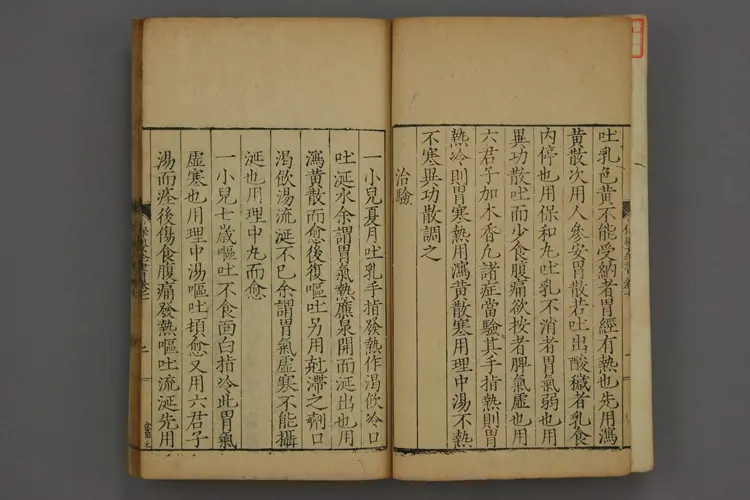 吐乳色黄不能受納者胃經有熱也先用瀉
黄散次用人參安胃散若吐出酸穢者乳食
内停也用保和丸吐乳不消者胃氣弱也用
異功散吐而少食腹痛欲按者脾氣虛也用
六君子加木香丸諸症當驗其手指熱則胃
熱冷則胃寒熱用瀉黄散寒用理中湯不熱
不寒異功散調之
治驗
一小兒夏月吐乳手指發熱作渴飲冷口
吐涎水余謂胃氣熱廉泉開而涎出也用
瀉黄散而愈後復嘔吐另用尅滯之劑口
渴飲湯流涎不已余謂胃氣虛寒不能攝
涎也用理中丸而愈
一小兒七歲嘔吐不食面白指冷此胃氣
虛寒也用理中湯嘔吐頓愈又用六君子
湯而痊後傷食腹痛發熱嘔吐流涎先用